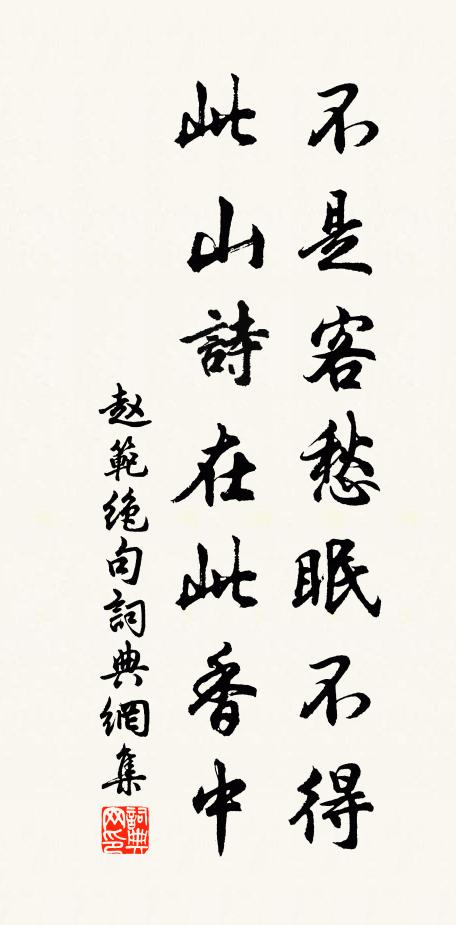 不是客愁眠不得
此山詩在此香中
赵範绝句詞典網集
詞典网印